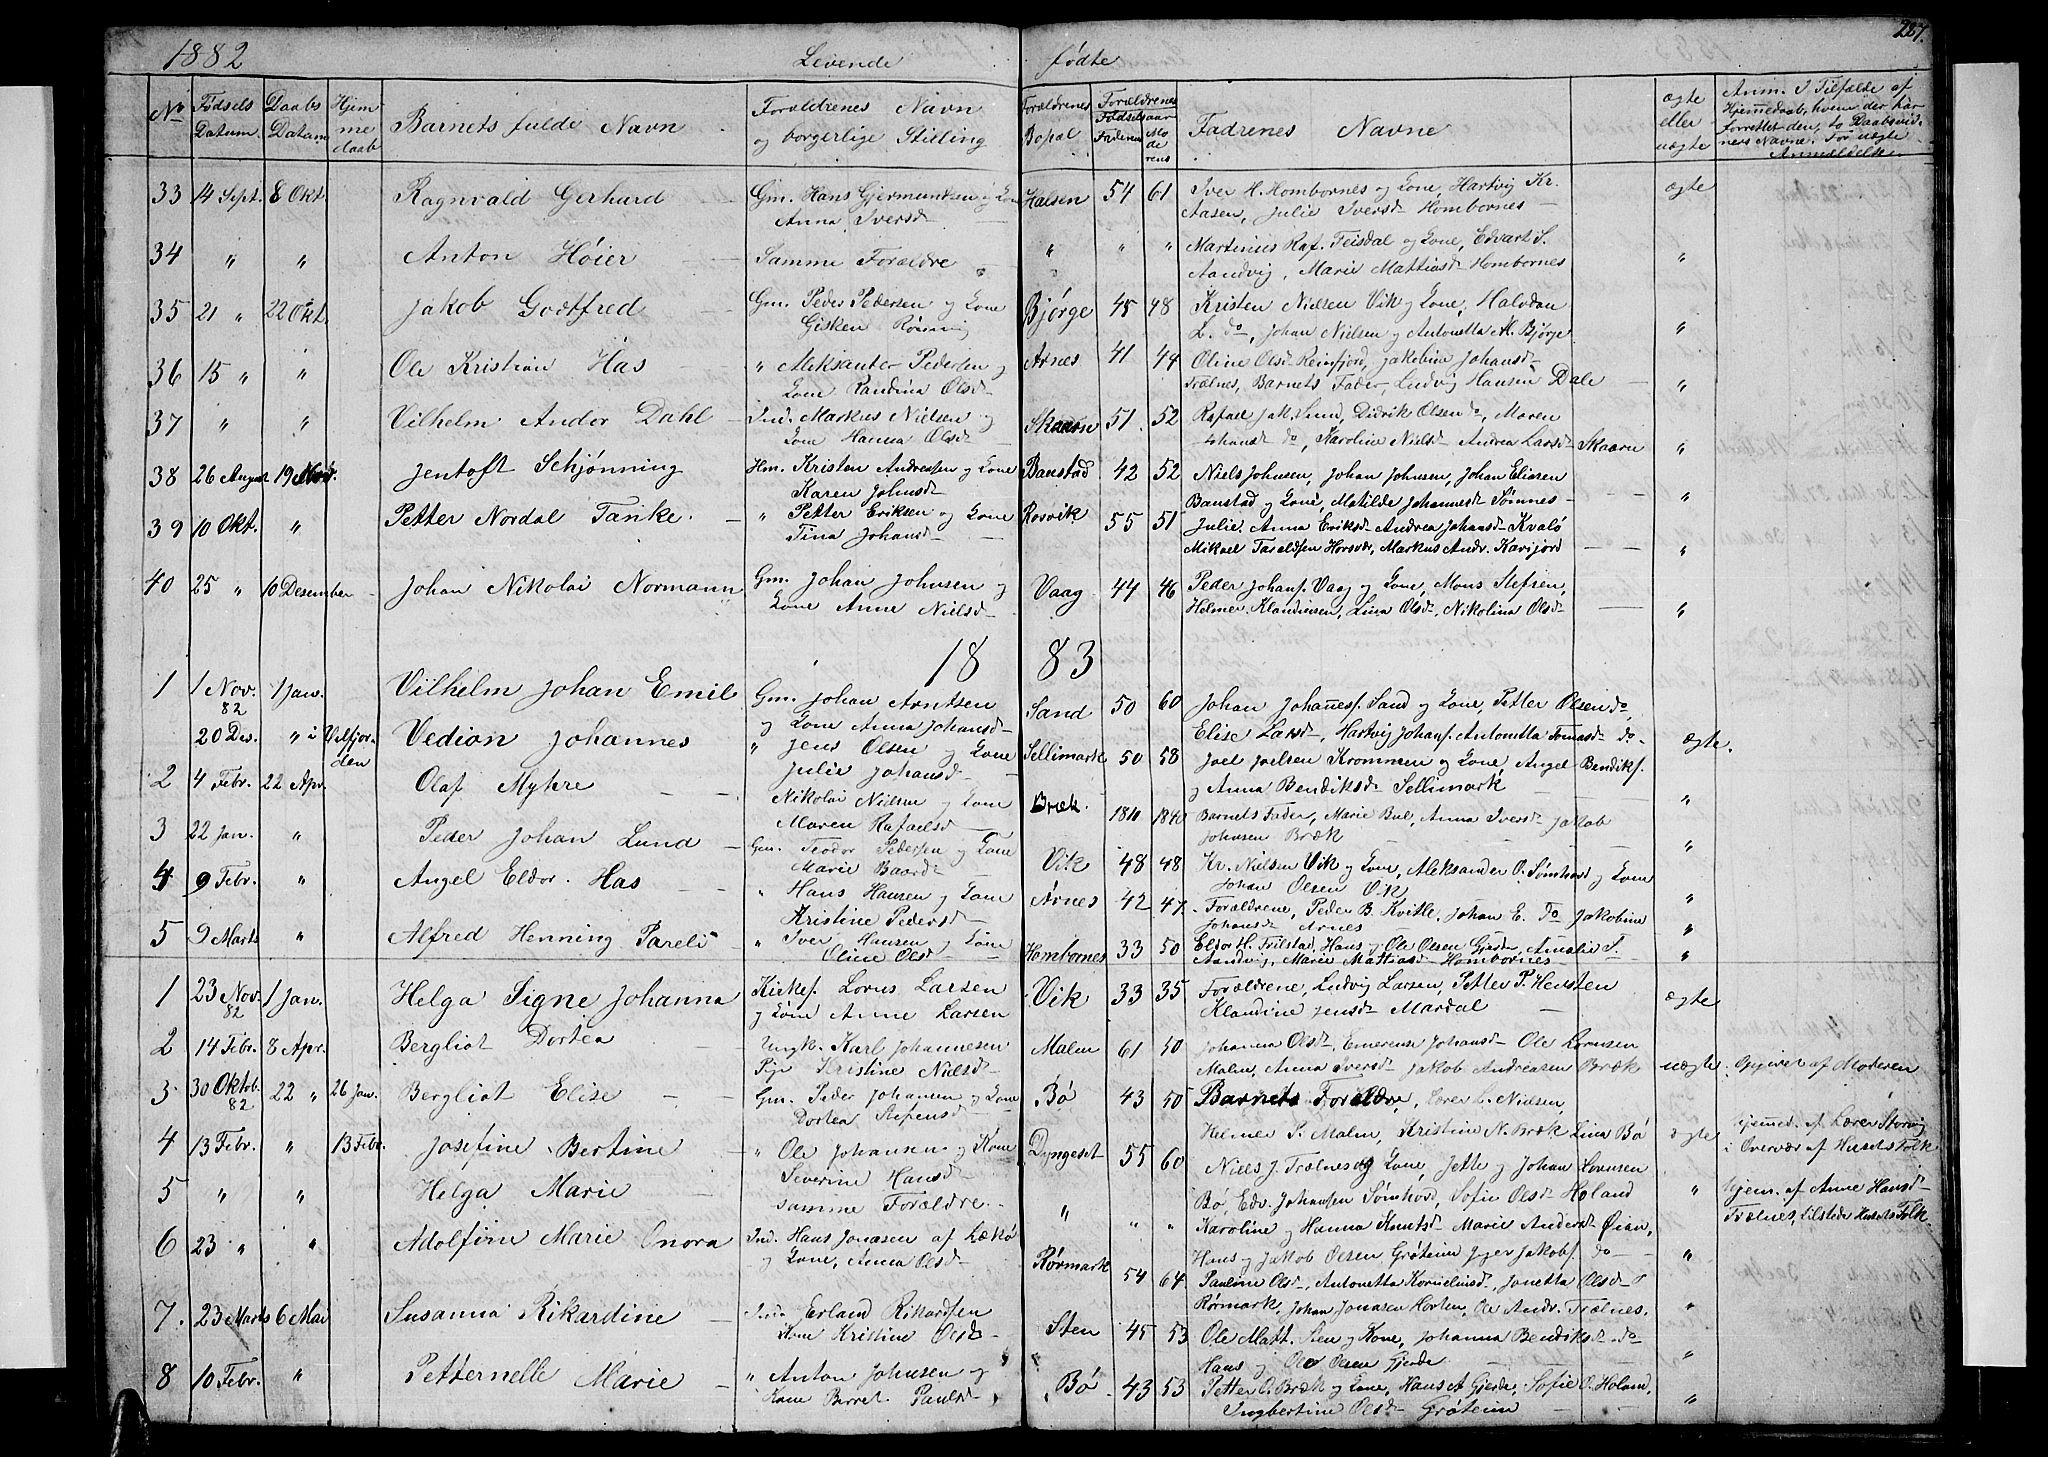 287.
1882 Levende fødte
No Fødsels Datum. Daabs Datum Hjem me daab Barnets fulde Navn Forældrenes Navn og borgerlige Stilling Forældrenes Bopæl Forældrenes Fødselsaar Faderens Mo de rens Fadrenes Navne ægte eller uægte Anm. I Tilfælde af Hjemmedaab, hvem der har forrettet den, to Daabsvidners Navne. For uægte Anmeldelse.
33 14 Sept. 8 Okt. Ragnvald Gerhard Gm. Hans Gjermundsen og Kone Halsen 54 61 Iver H. Hombornes og Kone, Hartvig Kr. ægte
Anna Iversd Aasen, Julie Iversd Hombornes
34 " " Anton Høier Samme Forældre " " " Martinus Raf. Teisdal og Kone, Edvart S.
Aandvig, Marie Mattiasd Hombornes "
35 21 " 22 Okt. Jakob Godtfred Gm. Peder Pedersen og Kone Bjørge 45 48 Kristen Nielsen Vik og Kone, Halvdan
Gisken Rønnig L. do, Johan Nielsen og Antonetta M. Bjørge "
36 15 " " Ole Kristian Has " Aleksander Pedersen og Arnes 41 44 Oline Olsd Reinfjord, Jakobina Johansd
Kone Randina Olsd Trælnes, Barnets Fader, Ludvig Hansen Dale "
37 " " Vilhelm Andor Dahl Ind. Markus Nielsen og Skaaren 51 52 Rafael J. M. Sund, Didrik Olsen do, Maren
Kone Hanna Olsd Johansd do, Karoline Nielsd Andrea Larsd Skaaren "
38 26 August 19 Nov. Jentoft Schjønning Hm. Kristen Andreassen og Kone Banstad 42 52 Niels Johnsen, Johan Johnsen, Johan Eliasen
Karen Johnsd Banstad og Kone, Matilde Johannesd Sømnes "
39 10 Okt. " Petter Nordal Tanke " Petter Eriksen og Kone Rørvik 55 51 Julie, Anna Eriksd Andrea Johansd Kvalø
Tina Johansd Mikael Taraldsen Horsvær, Markus Andr. Kvrijord "
40 25 " 10 Desember Johan Nikolai Normann Gm. Johan Johnsen og Vaag 44 46 Peder Johans. Vaag og Kone, Mons Stefsen,
Kone Anne Nielsd Helmer Klaudiusen, Lina Olsd, Nikolina Olsd "
18 83
1 1 Nov. 82 1 Jan. Vilhelm Johan Emil Gm. Johan Arntsen Sand 50 60 Johan Johannes. Sand og Kone, Petter Olsen do,
og Kone Anna Johansd Elise Larsd, Hartvig Johans. Antonetta Tomasd do ægte.
20 Des. " i Velfjorden Vedion Johannes " Jens Olsen og Kone Sellimark 50 58 Joel Joelsen Krommen og Kone Angel Bendiks.
Julie Johansd og Anna Bendiksd Sellimark "
2 4 Febr. 22 Apr. Olaf Myhre Nikolai Nielsen og Kone Bræk. Barnets Fader, Marie Bul, Anna Iversd Jakob
Maren Rafaelsd Johnsen Bræk "
3 22 Jan. " Peder Johan Lund Gm. Teodor Pedersen og Kone Vik 48 48 Kr. Nielsen Vik og Kone, Aleksander O. Sømhovd og Kone
Marie Baard Johan Olsen
4 9 Febr. " Angel Eldor Has " Hans Hansen og Kone Arnes 42 47 Forældrene, Peder B. Kvitle, Johan E. do Jakobine "
Kristine Pedersd Johansd Arnes "
5 9 Marts " Alfred Henning Pareli " Iver Hansen og Kone Hombornes 33 50 Eldor H. Trilstad, Hans og Ole Olsen Gjerde, Amalie T.
Oline Olsd Aandvig, Marie Mattiasd Hombornes "
1 23 Nov. 82 1 Jan. Helga Signe Johanna Kirkes. Lorns Larsen Vik 33 35 Forældrene, Ludvig Larsen, Petter P. Hensten ægte
og Kone Anne Larsen Klaudine Jensd Mardal
2 14 Febr. 8 Apr. Bergliot Dortea Ungk. Karl Johannesen Malm 61 50 Johanna Olsd, Emerense Johansd Ole Lornsen
Pige Kristine Nielsd Malm, Anna Iversd Jakob Andreasen Bræk uægte. Opgivet af Moderen
3 30 Oktob. 82 22 " 26 Jan. Bergliot Elise Gm. Peder Johansen og Kone Bø 43 50 Barnets Forældre, Lærer L. Nielsen,
Dortea Stefensd Helmer P. Malm, Kristine N. Bræk Lina Bø ægte Hjemmed. af Lærer Storvig i Overvær af Husets Folk
4 13 Febr. " 13 Febr. Josefine Bertine " Ole Johansen og Kone Dyngeset 55 60 Niels J. Trælnes og Kone, Jette og Johan Lorensen
Severine Hansd Bø, Edv. Johansen Sømhovd, Sofie Olsd Holand " Hjem. af Anne Hansd Trælnes, tilstede Husets Folk
5 " " Helga Marie samme Forældre. " " " Karoline og Hanna Knutsd Marie Andersd Øian,
Hans og Jakob Olsen Grøteim Jeger Jakobs. do "
6 23 " " Adolfine Marie Onora Ind. Hans Jonasen af Lækø Rørmark 54 64 Pauline Olsd, Antonetta Korneliusd, Jonetta Olsd
og Kone, Anna Olsd Rørmark, Johan Jonasen Horten, Ole Andr. Trælnes. "
7. 23 Marts 6 Mai Susanna Rikardine Ind. Erland Rikardsen Sten 45 53 Ole Matt. Sten og Kone, Johanna Bendiksd do
Kone Kristine Olsd Hans og Ole Olsen Gjerde "
8 10 Febr. " Petternelle Marie " Anton Johnsen og Bø 43 53 Petter O. Bræk og Kone, Hans A Gjerde, Sofie O. Holand,
Kone Berret Paulsd Ingbertine Olsd Grøteim "